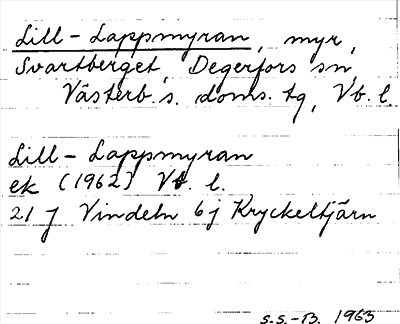 Lill-Lappmyran, myr,
Svartberget, Degerfors sn,
Västerb. s. doms. tg, Vb. l.
Lill-Lappmyran
ek (1962) Vb. l.
21 J Vindeln 6j Kryckeltjärn
S.S.-B. 1963